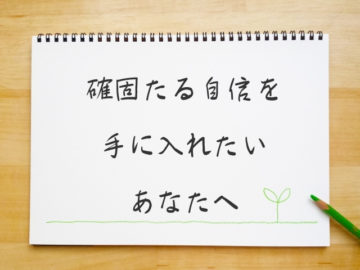 確固たる自信を
手に入れたい
あなたへ